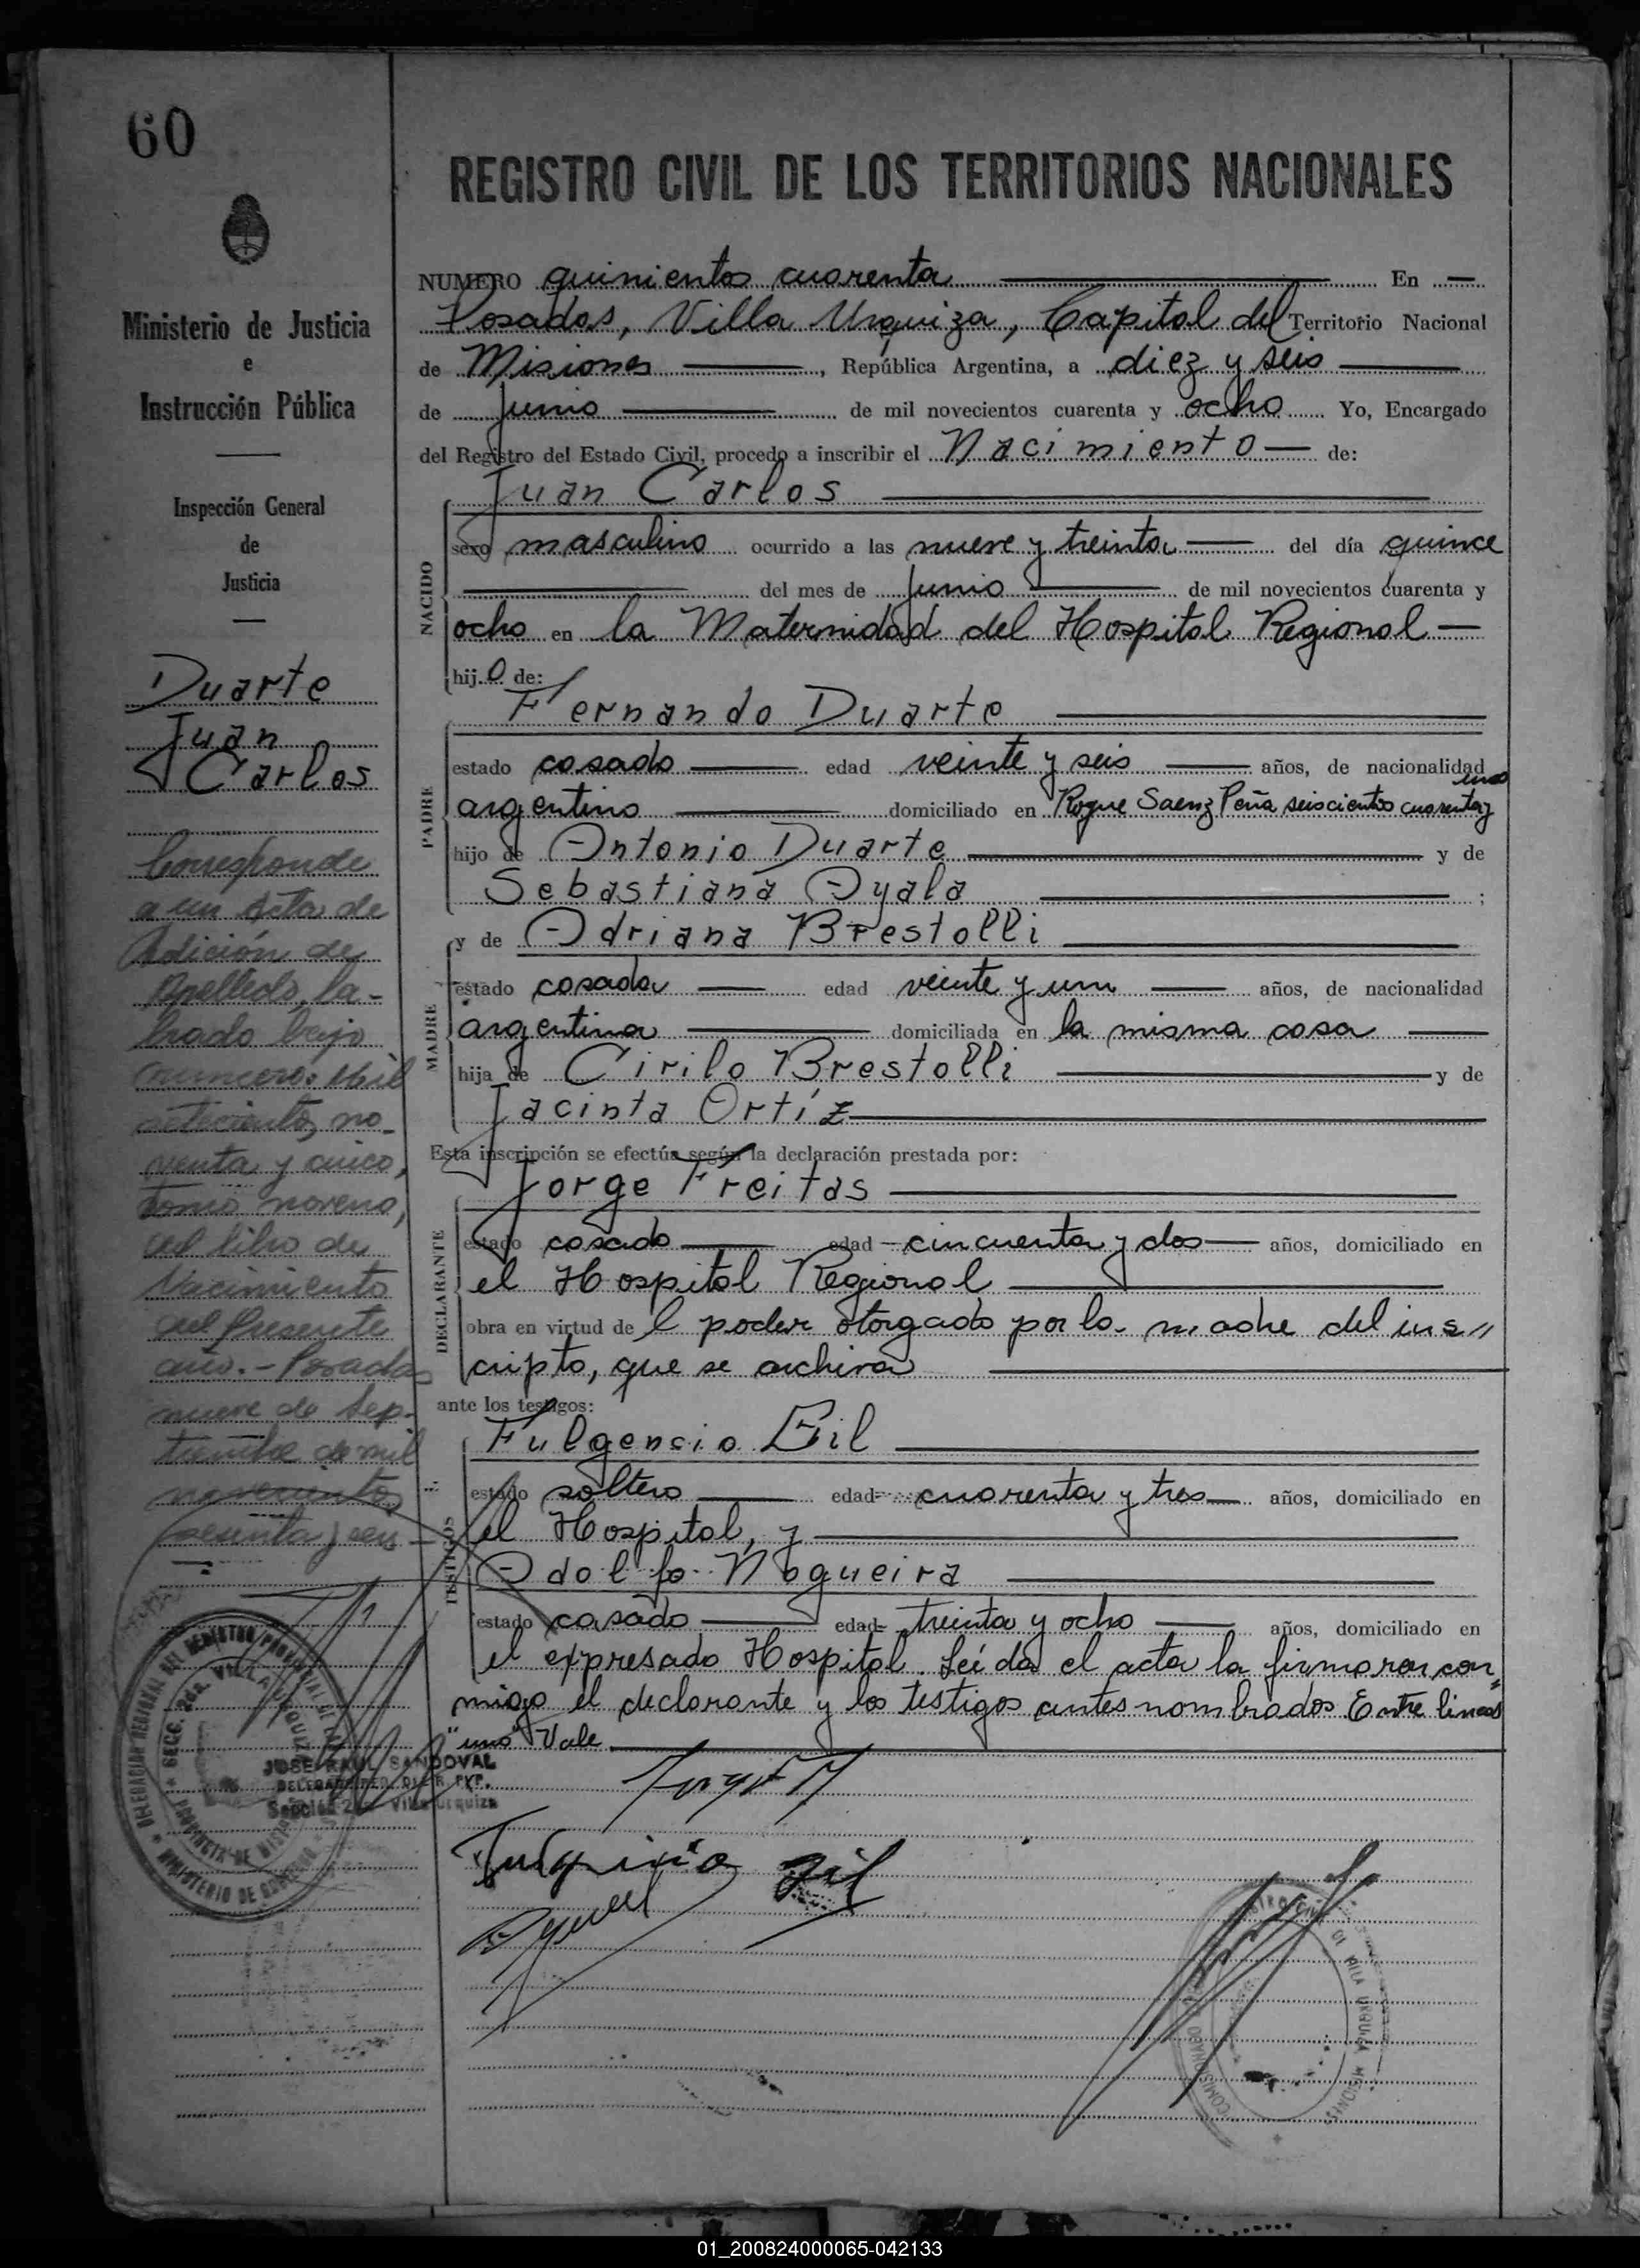 60
Ministerio de Justicia
e
Instrucción Pública
Inspección General
de
Justicia
Duarte
Juan
Carlos
Corresponde
a un Acta de
Adición de
Apellido, la-
brado bajo
número: Mil
setecientos no-
venta y cinco,
tomo noveno,
del libro de
Nacimiento
del presente
año.- Posadas
nueve de Sep-
tiembre de mil
novecientos
sesenta y seis
JOSE RAUL SANDOVAL
Sección 2da. Villa Urquiza
REGISTRO CIVIL DE LOS TERRITORIOS NACIONALES
NUMERO quinientos cuarenta En
Posadas, Villa Urquiza, Capital del Territorio Nacional
de Misiones, República Argentina, a diez y seis
de junio de mil novecientos cuarenta y ocho Yo, Encargado
del Registro del Estado Civil, procedo a inscribir el Nacimiento de:
Juan Carlos
NACIDO
sexo masculino ocurrido a las nueve y treinta del día quince
del mes de junio de mil novecientos cuarenta y
ocho en la Maternidad del Hospital Regional
hijo de:
Fernando Duarte
PADRE
estado casado edad veinte y seis años, de nacionalidad
uno
argentino domiciliado en Roque Saenz Peña seiscientos cuarenta y
hijo de Antonio Duarte y de
Sebastiana Ayala;
y de Adriana Brestolli
MADRE
estado casada edad veinte y un años, de nacionalidad
argentina domiciliada en la misma casa
hija de Cirilo Brestolli y de
Jacinta Ortíz
Esta inscripción se efectúa según la declaración prestada por:
Jorge Freitas
DECLARANTE
estado casado edad cincuenta y dos años, domiciliado en
el Hospital Regional
obra en virtud del poder otorgado por la madre del ins//
cripto, que se archiva
ante los testigos:
Fulgencio Gil
TESTIGOS
estado soltero edad cuarenta y tres años, domiciliado en
el Hospital, y
Adolfo Nogueira
estado casado edad treinta y ocho años, domiciliado en
el expresado Hospital. Leída el acta la firmaron con=
migo el declarante y los testigos antes nombrados Entre lineas
"uno" Vale
Fulgencio Gil
01_200824000065-042133